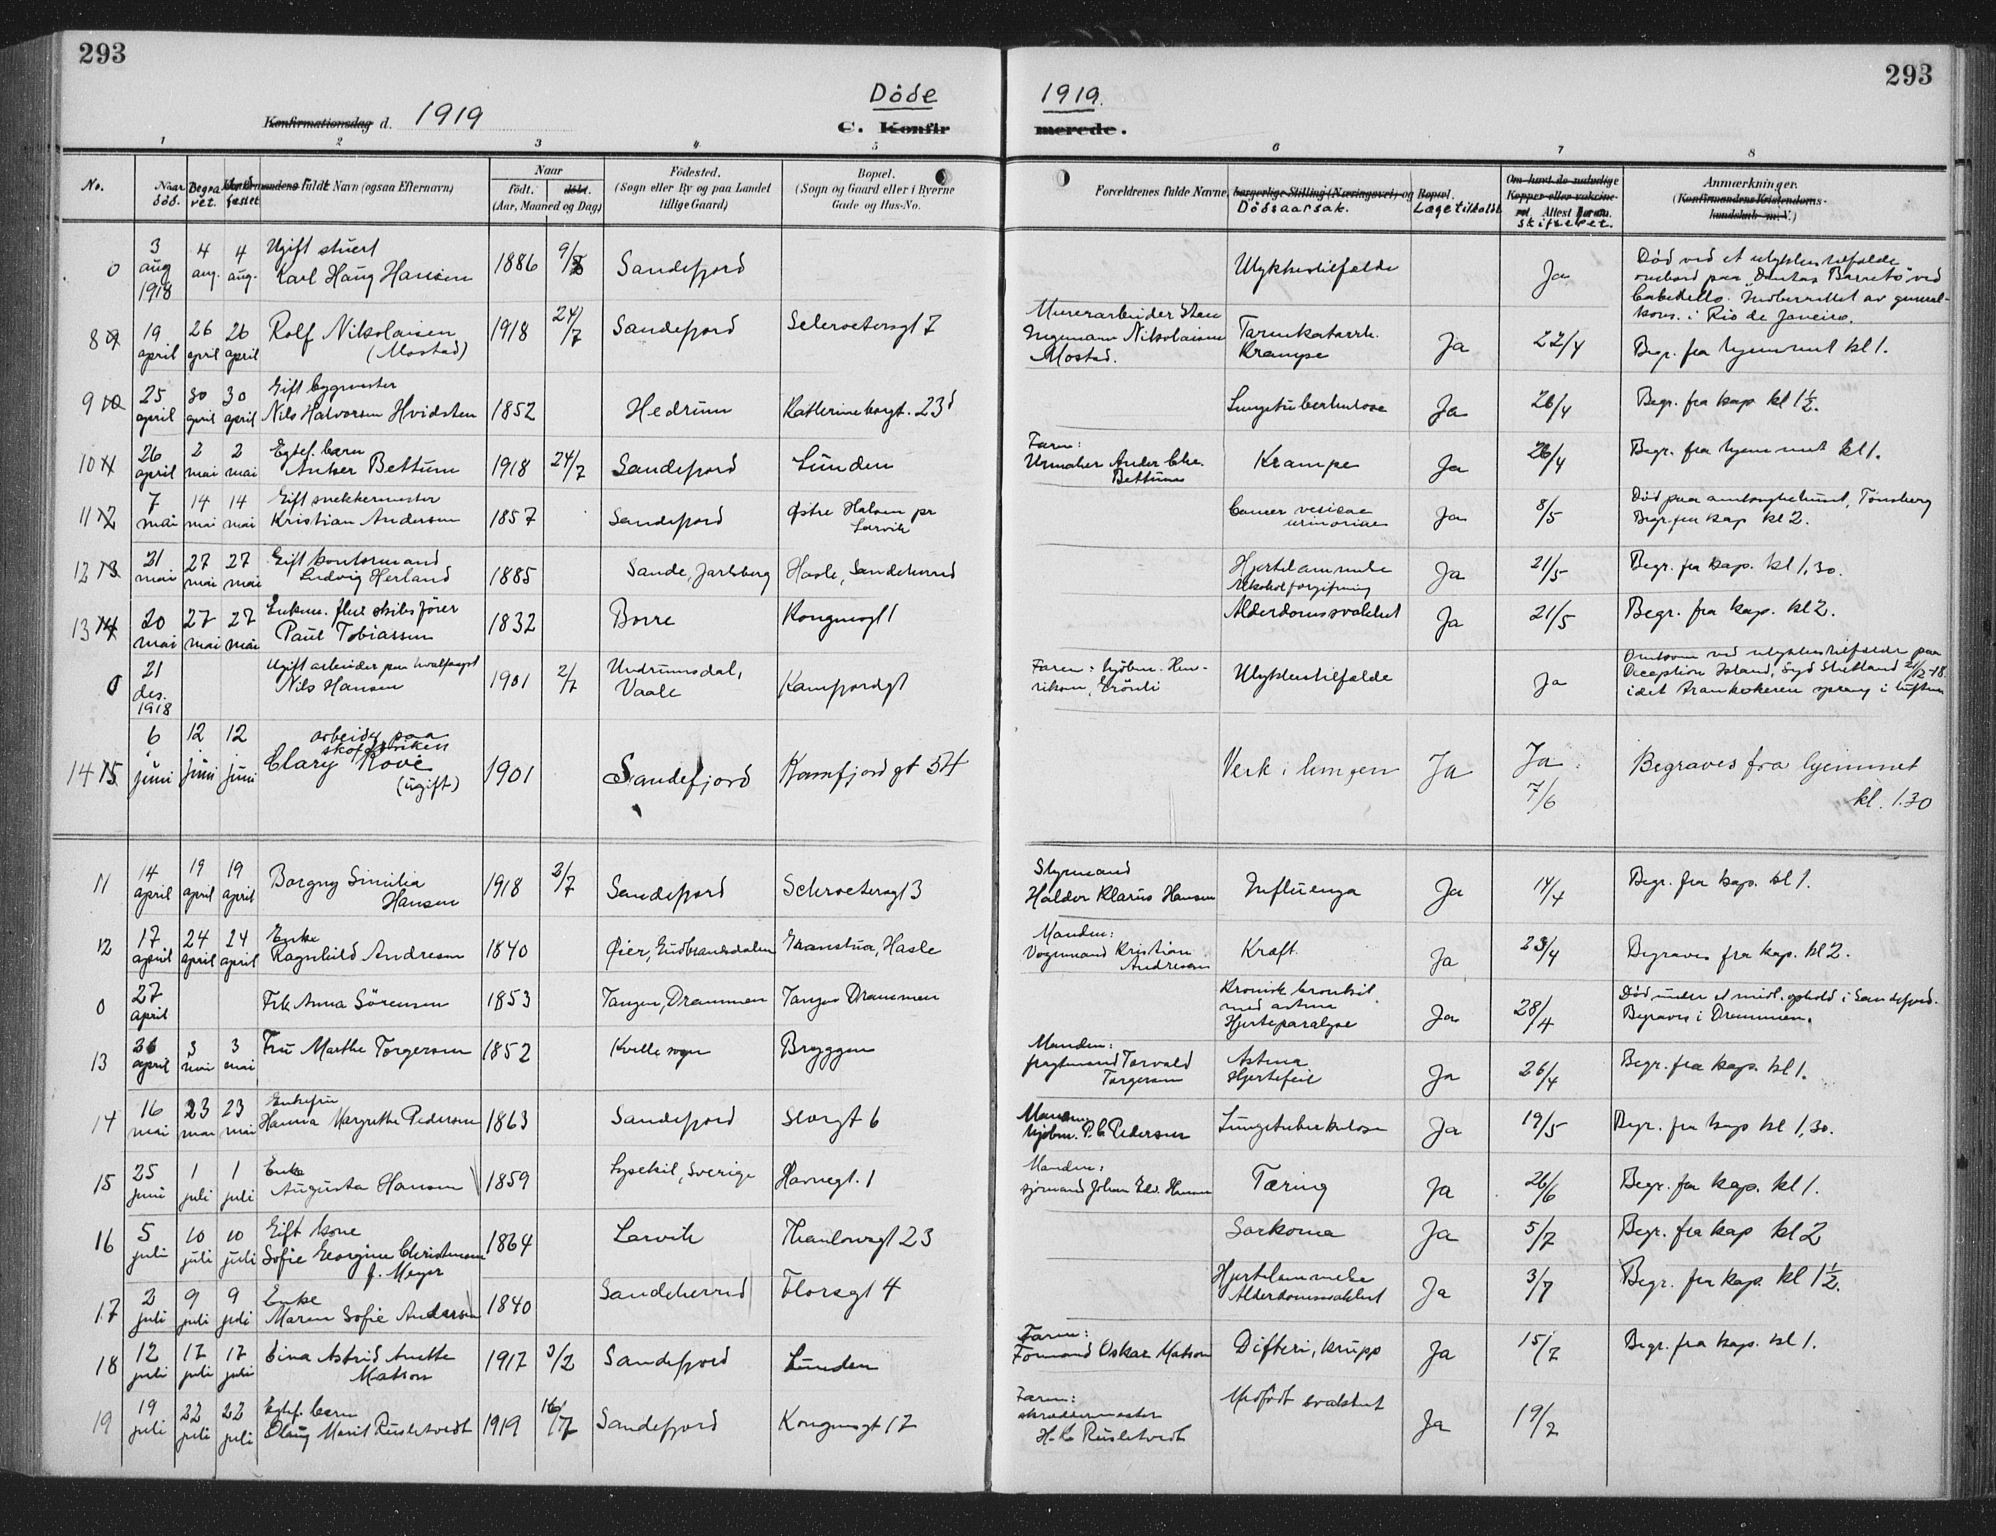 293
293
Døde 1919.
Konfirmationsdag d. 1919
C. Konfirmerede.
1 2 3 4 5 6 7 8
No.
Naar død.
Begravet.
Jordfæstet
Konfirmandens fulde Navn (ogsaa Efternavn)
Naar
født. døbt.
(Aar, Maaned og Dag)
Fødested.
(Sogn eller By og paa Landet tillige Gaard)
Bopæl.
(Sogn og Gaard eller i Byerne Gade og Hus-No.
Forældrenes fulde Navne, borgerlige Stilling (Næringsvei) og Bopæl.
Dødsaarsak. Læge tilkaldt
Om havt de naturlige Kopper eller vakcineret. Attest herom.
Skifteret.
Anmærkninger.
(Konfirmandens Kristendomskundskab m. V.)
0 3 aug 1918 4 aug. 4 aug. Ugift stuert Karl Haug Hansen 1886 Sandefjord Ulykkestilfælde Ja Død ved et ulykkestilfælde ombord paa "Dantas Barreto" ved Cabedello. Indberettet av general-kons. i Rio de Janeiro.
8 19 april 26 april 26 april Rolf Nikolaisen (Mostad) 1918 24/7 Sandefjord Schrøetersgt 7 Murerarbeider Sten Ingemann Nikolaisen Mostad. Tarmkatarrh. Krampe Ja 22/4 Begr. fra hjemmet kl 1.
9 10 25 april 30 april 30 april Gift bygmester Nils Halvorsen Hvidsten 1852 Hedrum Katherineborgt. 23 Lungetuberkulose Ja 26/4 Begr. fra kap. kl 1½.
10 11 26 april 2 mai 2 mai Egtef. barn Anker Bettum 1918 24/7 Sandefjord Lunden Faren: Urmaker Ander Chr. Bettum Krampe Ja 26/4 Begr. fra hjemmet kl 1.
11 12 7 mai 14 mai 14 mai Gift snekkermester Kristian Andersen 1857 Sandefjord Østre Halsen pr Larvik Cancer vesicae urinariae Ja 8/5 Død paa amtssykehuset, Tønsberg Begr. fra kap. kl 2.
12 13 21 mai 27 mai 27 mai Gift kontormand Ludvig Herland 1885 Sande, Jarlsberg Hasle, Sandeherred Hjertelammelse Alkoholforgiftning Ja 21/5 Begr. fra kap. kl 1,30.
13 14 20 mai 27 mai 27 mai Enkem. fhv skibsfører Paul Tobiassen 1832 Borre Kongensgt 1 Alderdomssvakhet Ja 21/5 Begr. fra kap. kl 2.
0 21 des. 1918 Ugift arbeider paa hvalfangst Nils Hansen 1901 2/7 Undrumsdal, Vaale Kamfjordgt Ulykkestilfælde Ja Omkom ved ulykkestilfælde paa Deception Island, Syd Shetland 21/12-18. idet trankokeren sprang i luften
14 15 6 juni 12 juni 12 juni arbeider paa skofabriken Clary Rove (ugift) 1901 Sandefjord Kamfjordgt 54 Verk i lungen Ja Ja 7/6 Begraves fra hjemmet kl. 1.30
11 14 april 19 april 19 april Borgny Similia Hansen 1918 2/7 Sandefjord Schroetersgt 3 Styrmand Haldor Klarius Hansen Influenza Ja 14/4 Begr. fra kap. kl 1.
12 17 april 24 april 24 april Enke Ragnhild Andresen 1840 Øier, Gudbrandsdalen Granstua, Hasle Manden: Vognmand Kristian Andresen Kræft Ja 23/4 Begraves fra kap. kl 2.
0 27 april Frk Anna Sørensen 1853 Tangen, Drammen Tangen Drammen Kronisk bronkit med astma Hjerteparalyse Ja 28/4 Død under et midl. ophold i Sandefjord. Begraves i Drammen.
13 26 april 3 mai 3 mai Fru Marthe Torgersen 1852 Kville sogn Bryggen Manden: fragtmand Torvald Torgersen Astma Hjertefeil Ja 26/4 Begr. fra kap. kl 1.
14 16 mai 23 mai 23 mai Enkefru Hanna Margrethe Pedersen 1863 Sandefjord Storgt 6 Manden: kjøbm. P. C. Pedersen Lungetuberkulose Ja 19/5 Begr. fra kap kl 1,30.
15 25 juni 1 juli 1 juli Enke Augusta Hansen 1859 Lysekil, Sverige Havnegt. 1 Manden: sjømand Johan Edv. Hansen Tæring Ja 26/6 Begr. fra kap. kl 1.
16 5 juli 10 juli 10 juli Gift kone Sofie Georgine Christensen f. Meyer 1864 Larvik Thaulowsgt 23 Sarkoma Ja 5/7 Begr. fra kap kl 2
17 2 juli 9 juli 9 juli Enke Maren Sofie Andersen 1840 Sandeherred Florsgt 4 Hjertelammelse Alderdomssvakhet Ja 3/7 Begr. fra kap. kl 1½.
18 12 juli 17 juli 17 juli Eina Astrid Anette Matson 1917 3/2 Sandefjord Lunden Faren: Formand Oskar Matson Difteri, krupp Ja 15/7 Begr. fra kap. kl 1.
19 19 juli 22 juli 22 juli Egtef. barn Olaug Marit Rusletvedt 1919 16/7 Sandefjord Kongensgt 17 Faren: skræddermester H. C. Rusletvedt Medfødt svakhet Ja 19/7